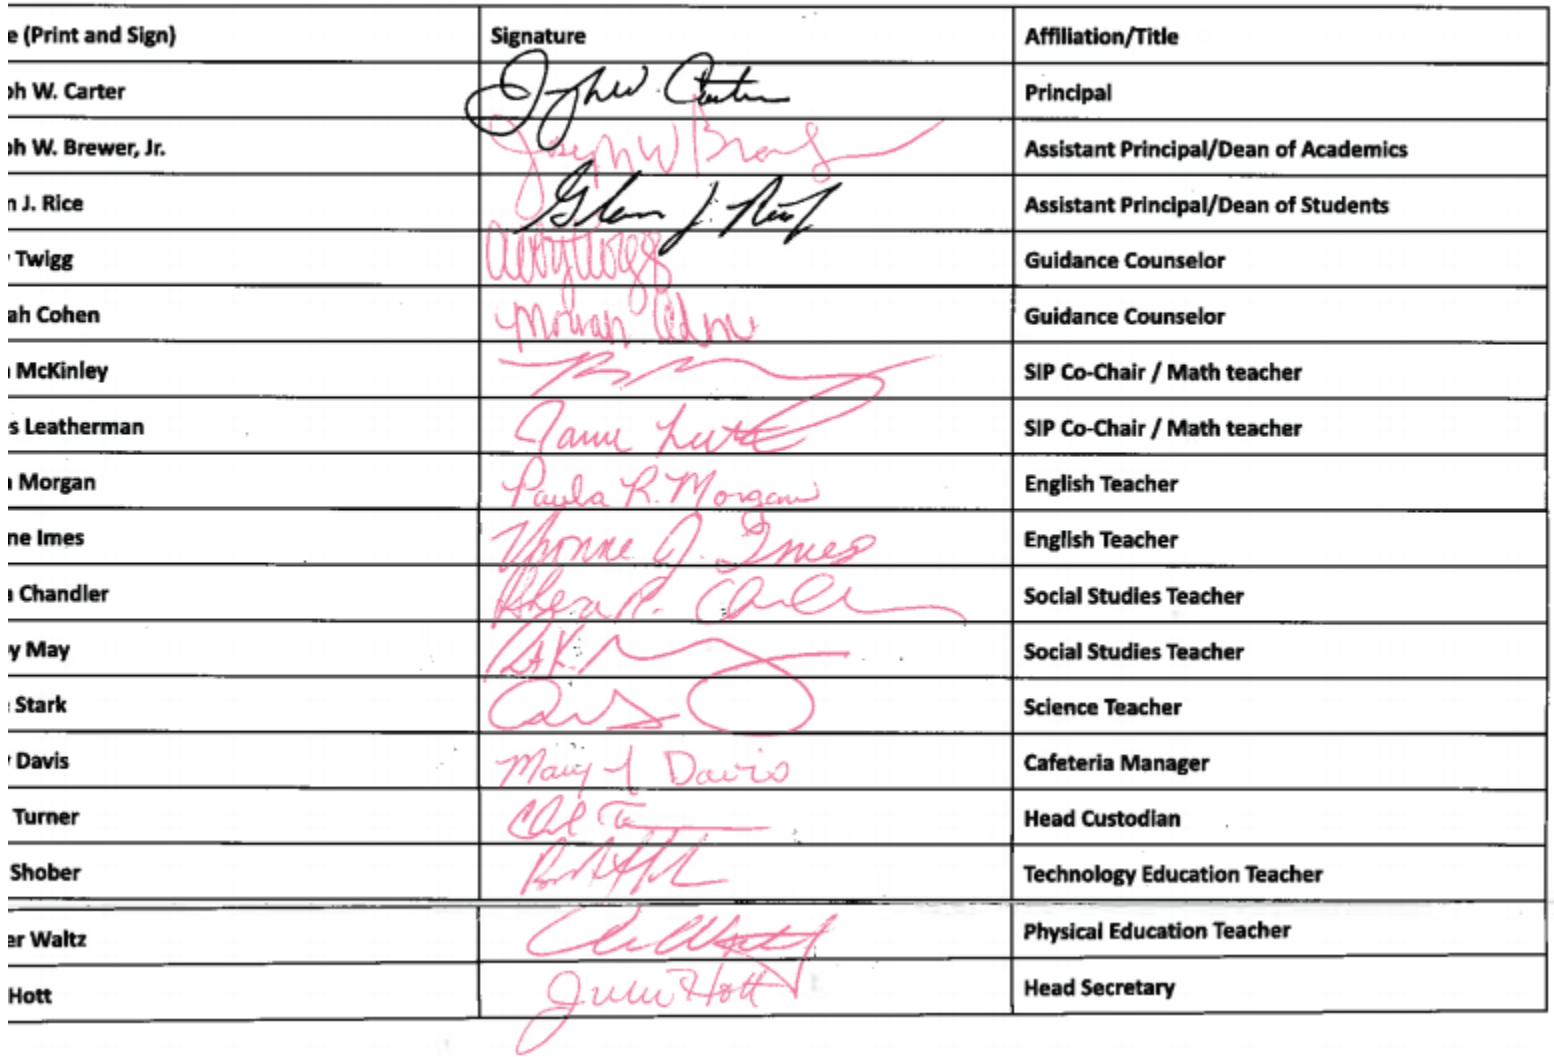 e (Print and Sign) Signature Affiliation/Title
ph W. Carter Principal
ph W. Brewer, Jr. Joseph W Assistant Principal/Dean of Academics
n J. Rice Glenn J. Assistant Principal/Dean of Students
Twigg Guidance Counselor
ah Cohen Guidance Counselor
McKinley SIP Co-Chair / Math teacher
s Leatherman SIP Co-Chair / Math teacher
Morgan Paula R. Morgan English Teacher
ne Imes Yvonne J. Imes English Teacher
Chandler Social Studies Teacher
y May Social Studies Teacher
Stark Science Teacher
Davis Mary Davis Cafeteria Manager
Turner Head Custodian
Shober Technology Education Teacher
er Waltz Physical Education Teacher
Hott Hott Head Secretary